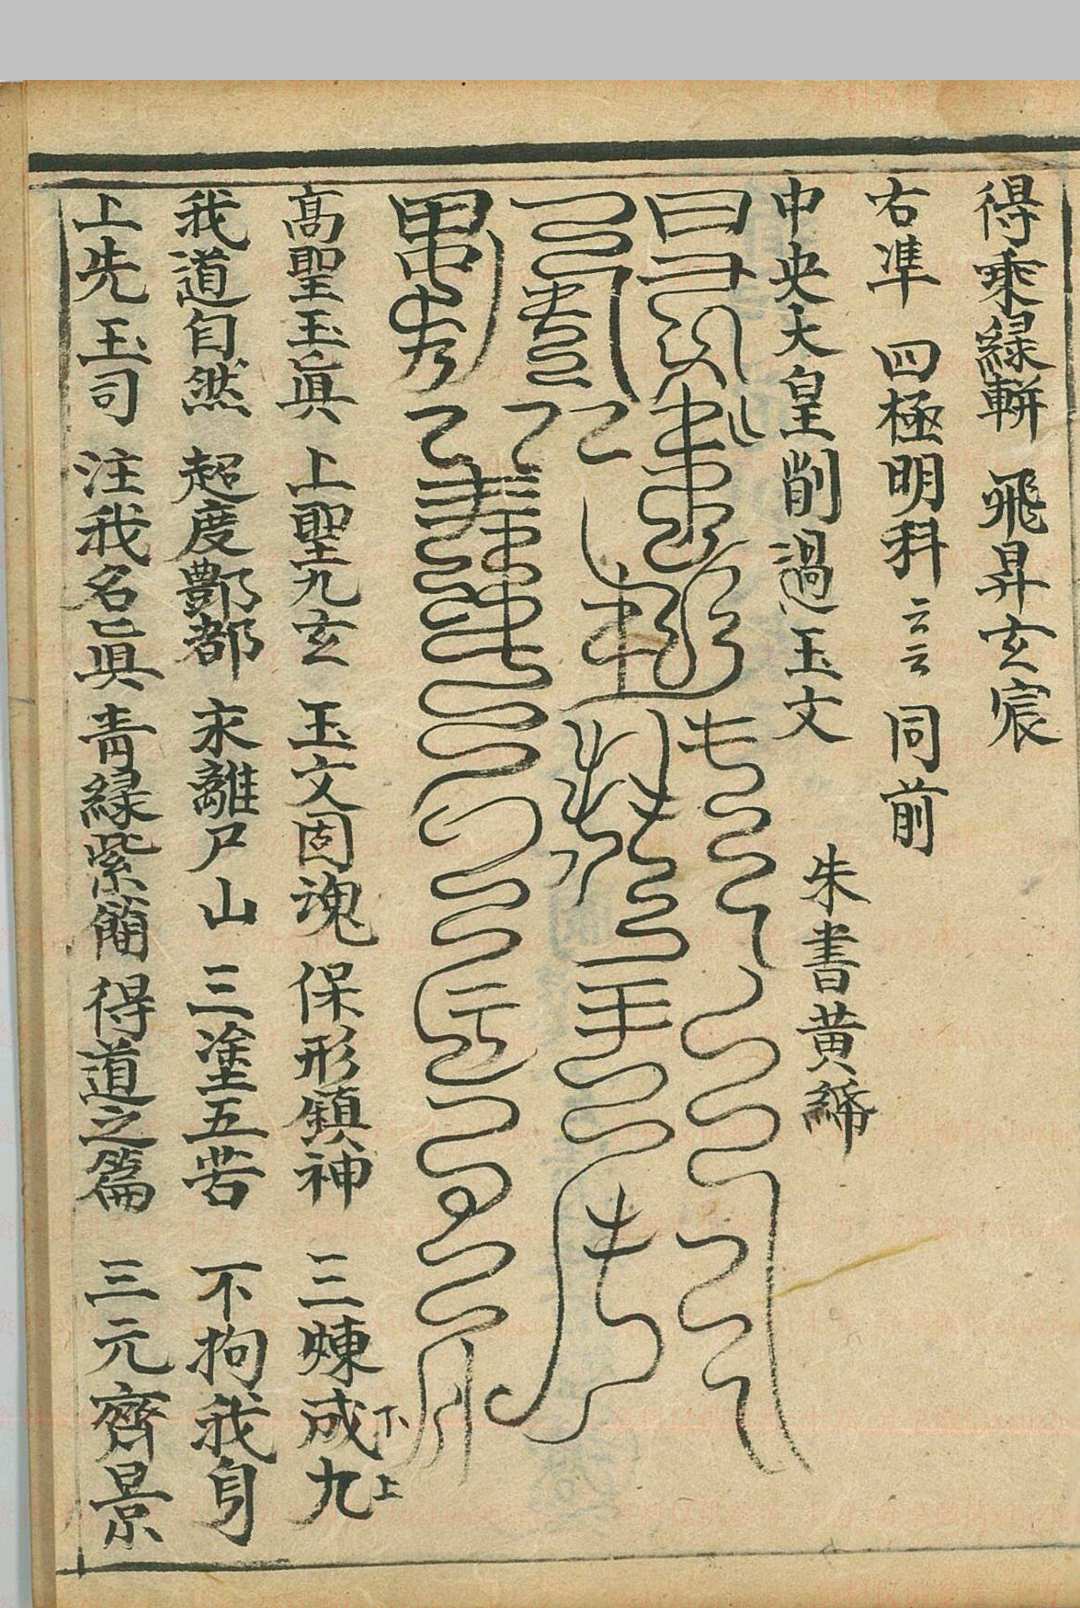 得乘緑軿　飛昇玄宸
右凖　四極明科　云云　同前
中央大皇削過玉文　朱書黄繒
高聖玉眞　上聖九玄　玉文固魂　保形鎮神　三煉成九
下
上
我道自然　超度酆都　永離尸山　三塗五苦　不拘我身
上先玉司　注我名眞　青緑紫簡　得道之篇　三元齊景